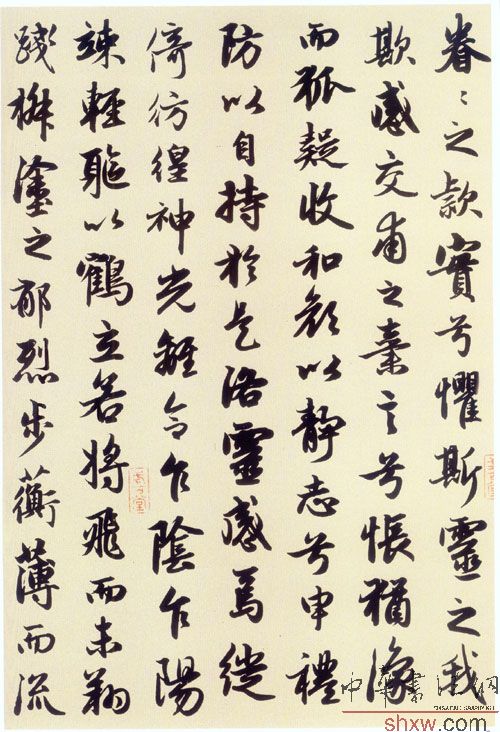 眷〻之款實兮懼斯靈之我
欺感交甫之棄言兮悵猶豫
而狐疑收和顏以靜志兮申禮
防以自持於是洛靈感焉徙
倚彷徨神光離合乍陰乍陽
竦輕軀以鶴立若將飛而未翔
踐椒塗之郁烈步蘅薄而流
中華書法網
shxw.com